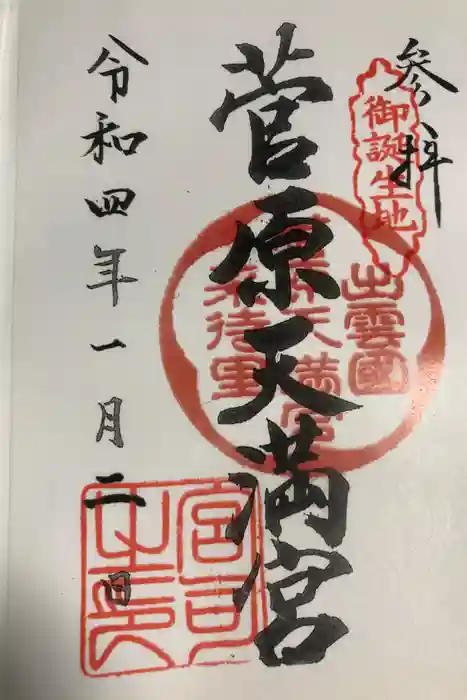 参拝
御誕生地
菅原天満宮
出雲國
菅原天満宮
来待里
令和四年一月二日
宮司
之印